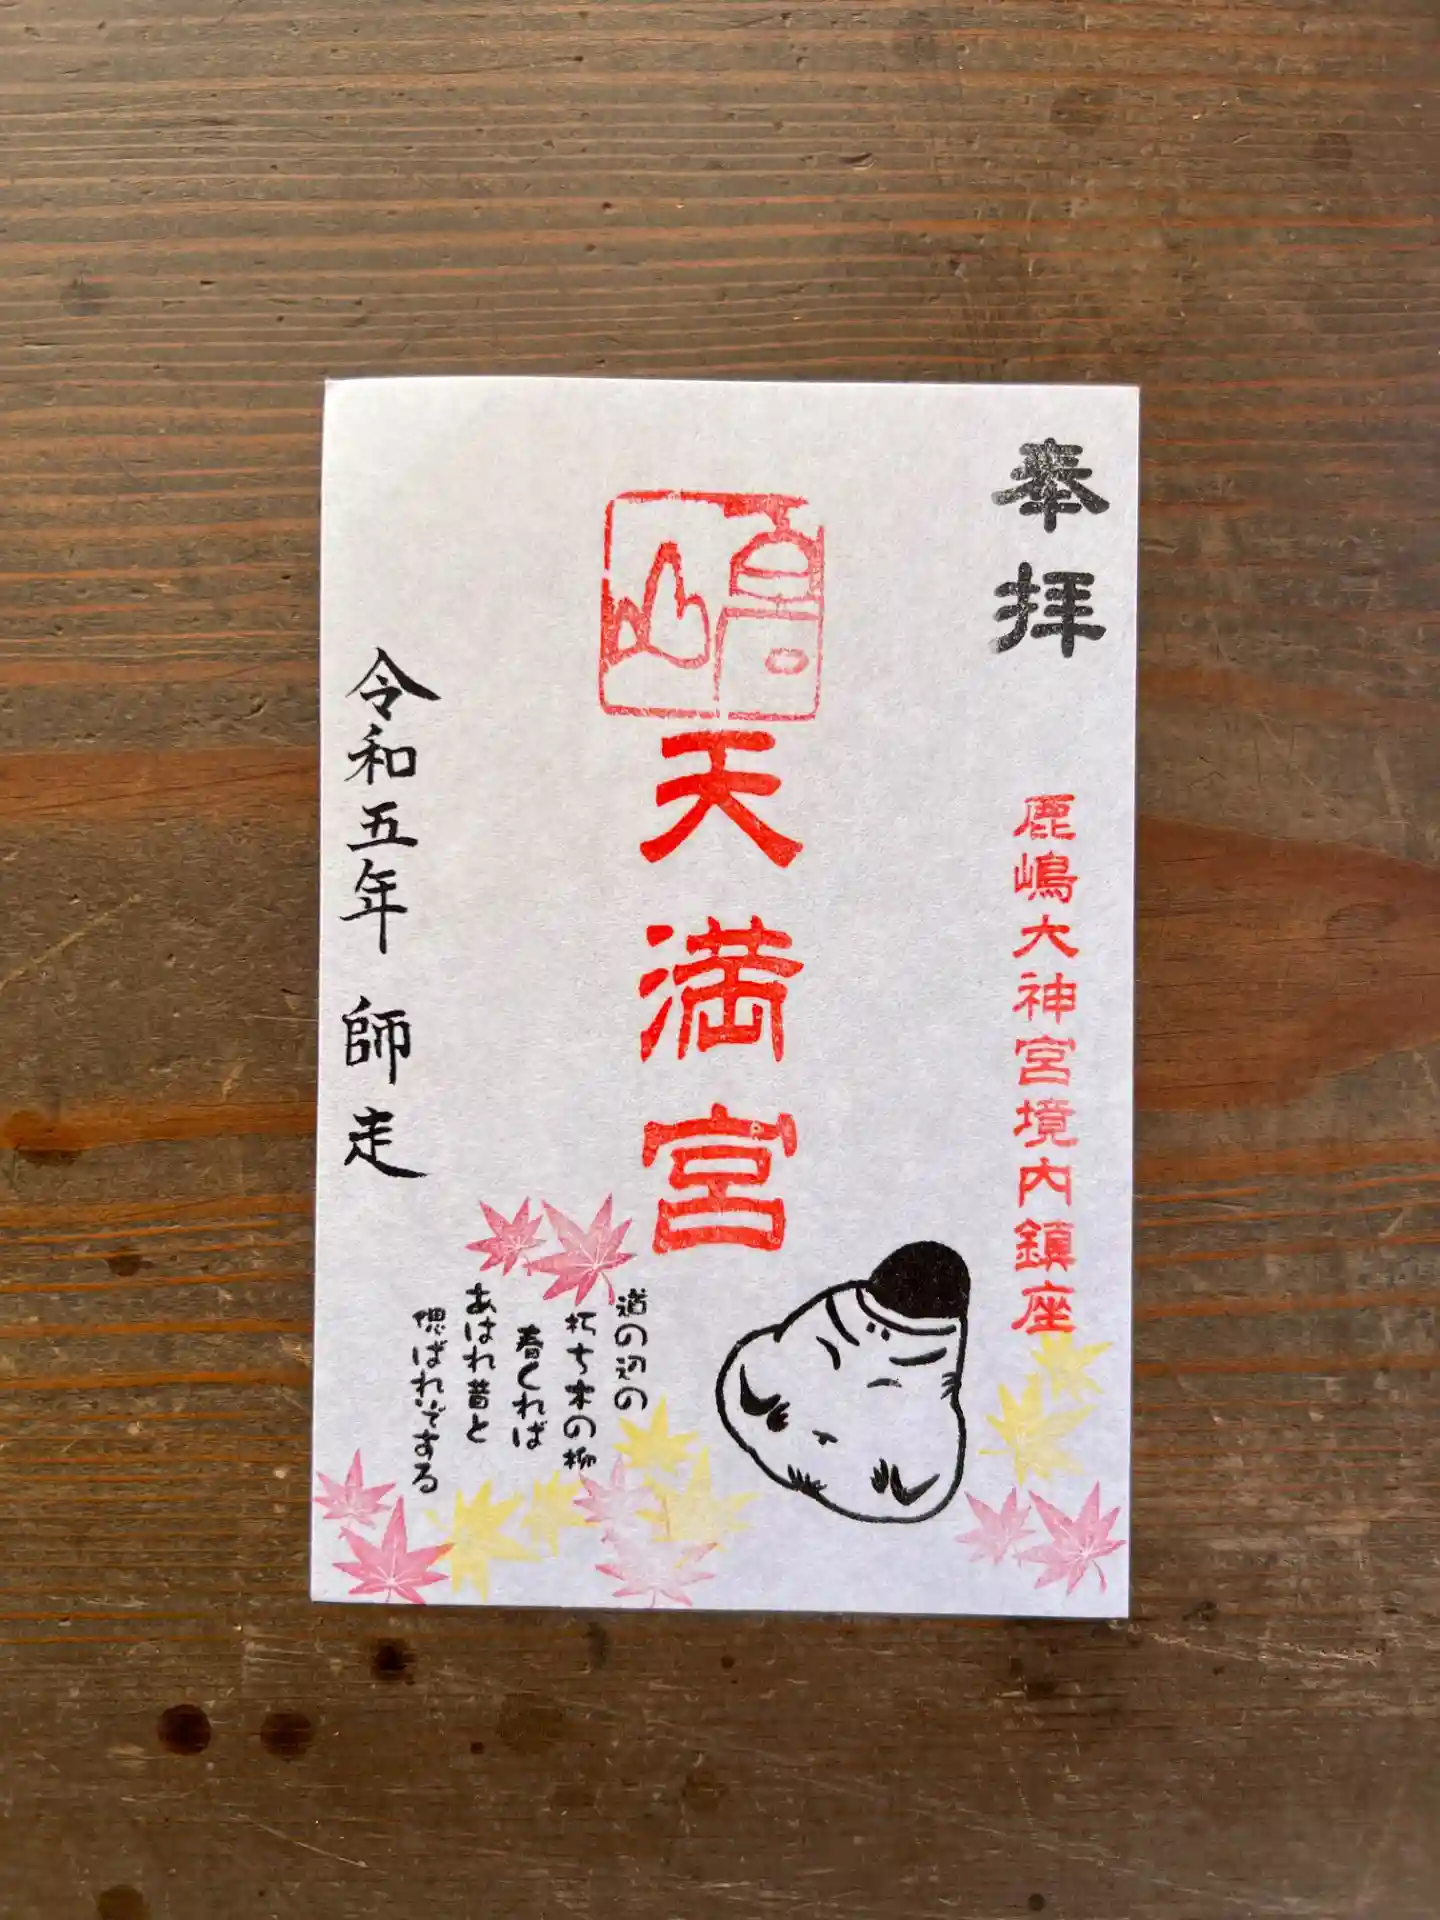 奉拝
鹿嶋大神宮境内鎮座
天満宮
道の辺の
朽ち木の柳
春くれば
あはれ昔と
偲ばれぞする
令和五年 師走